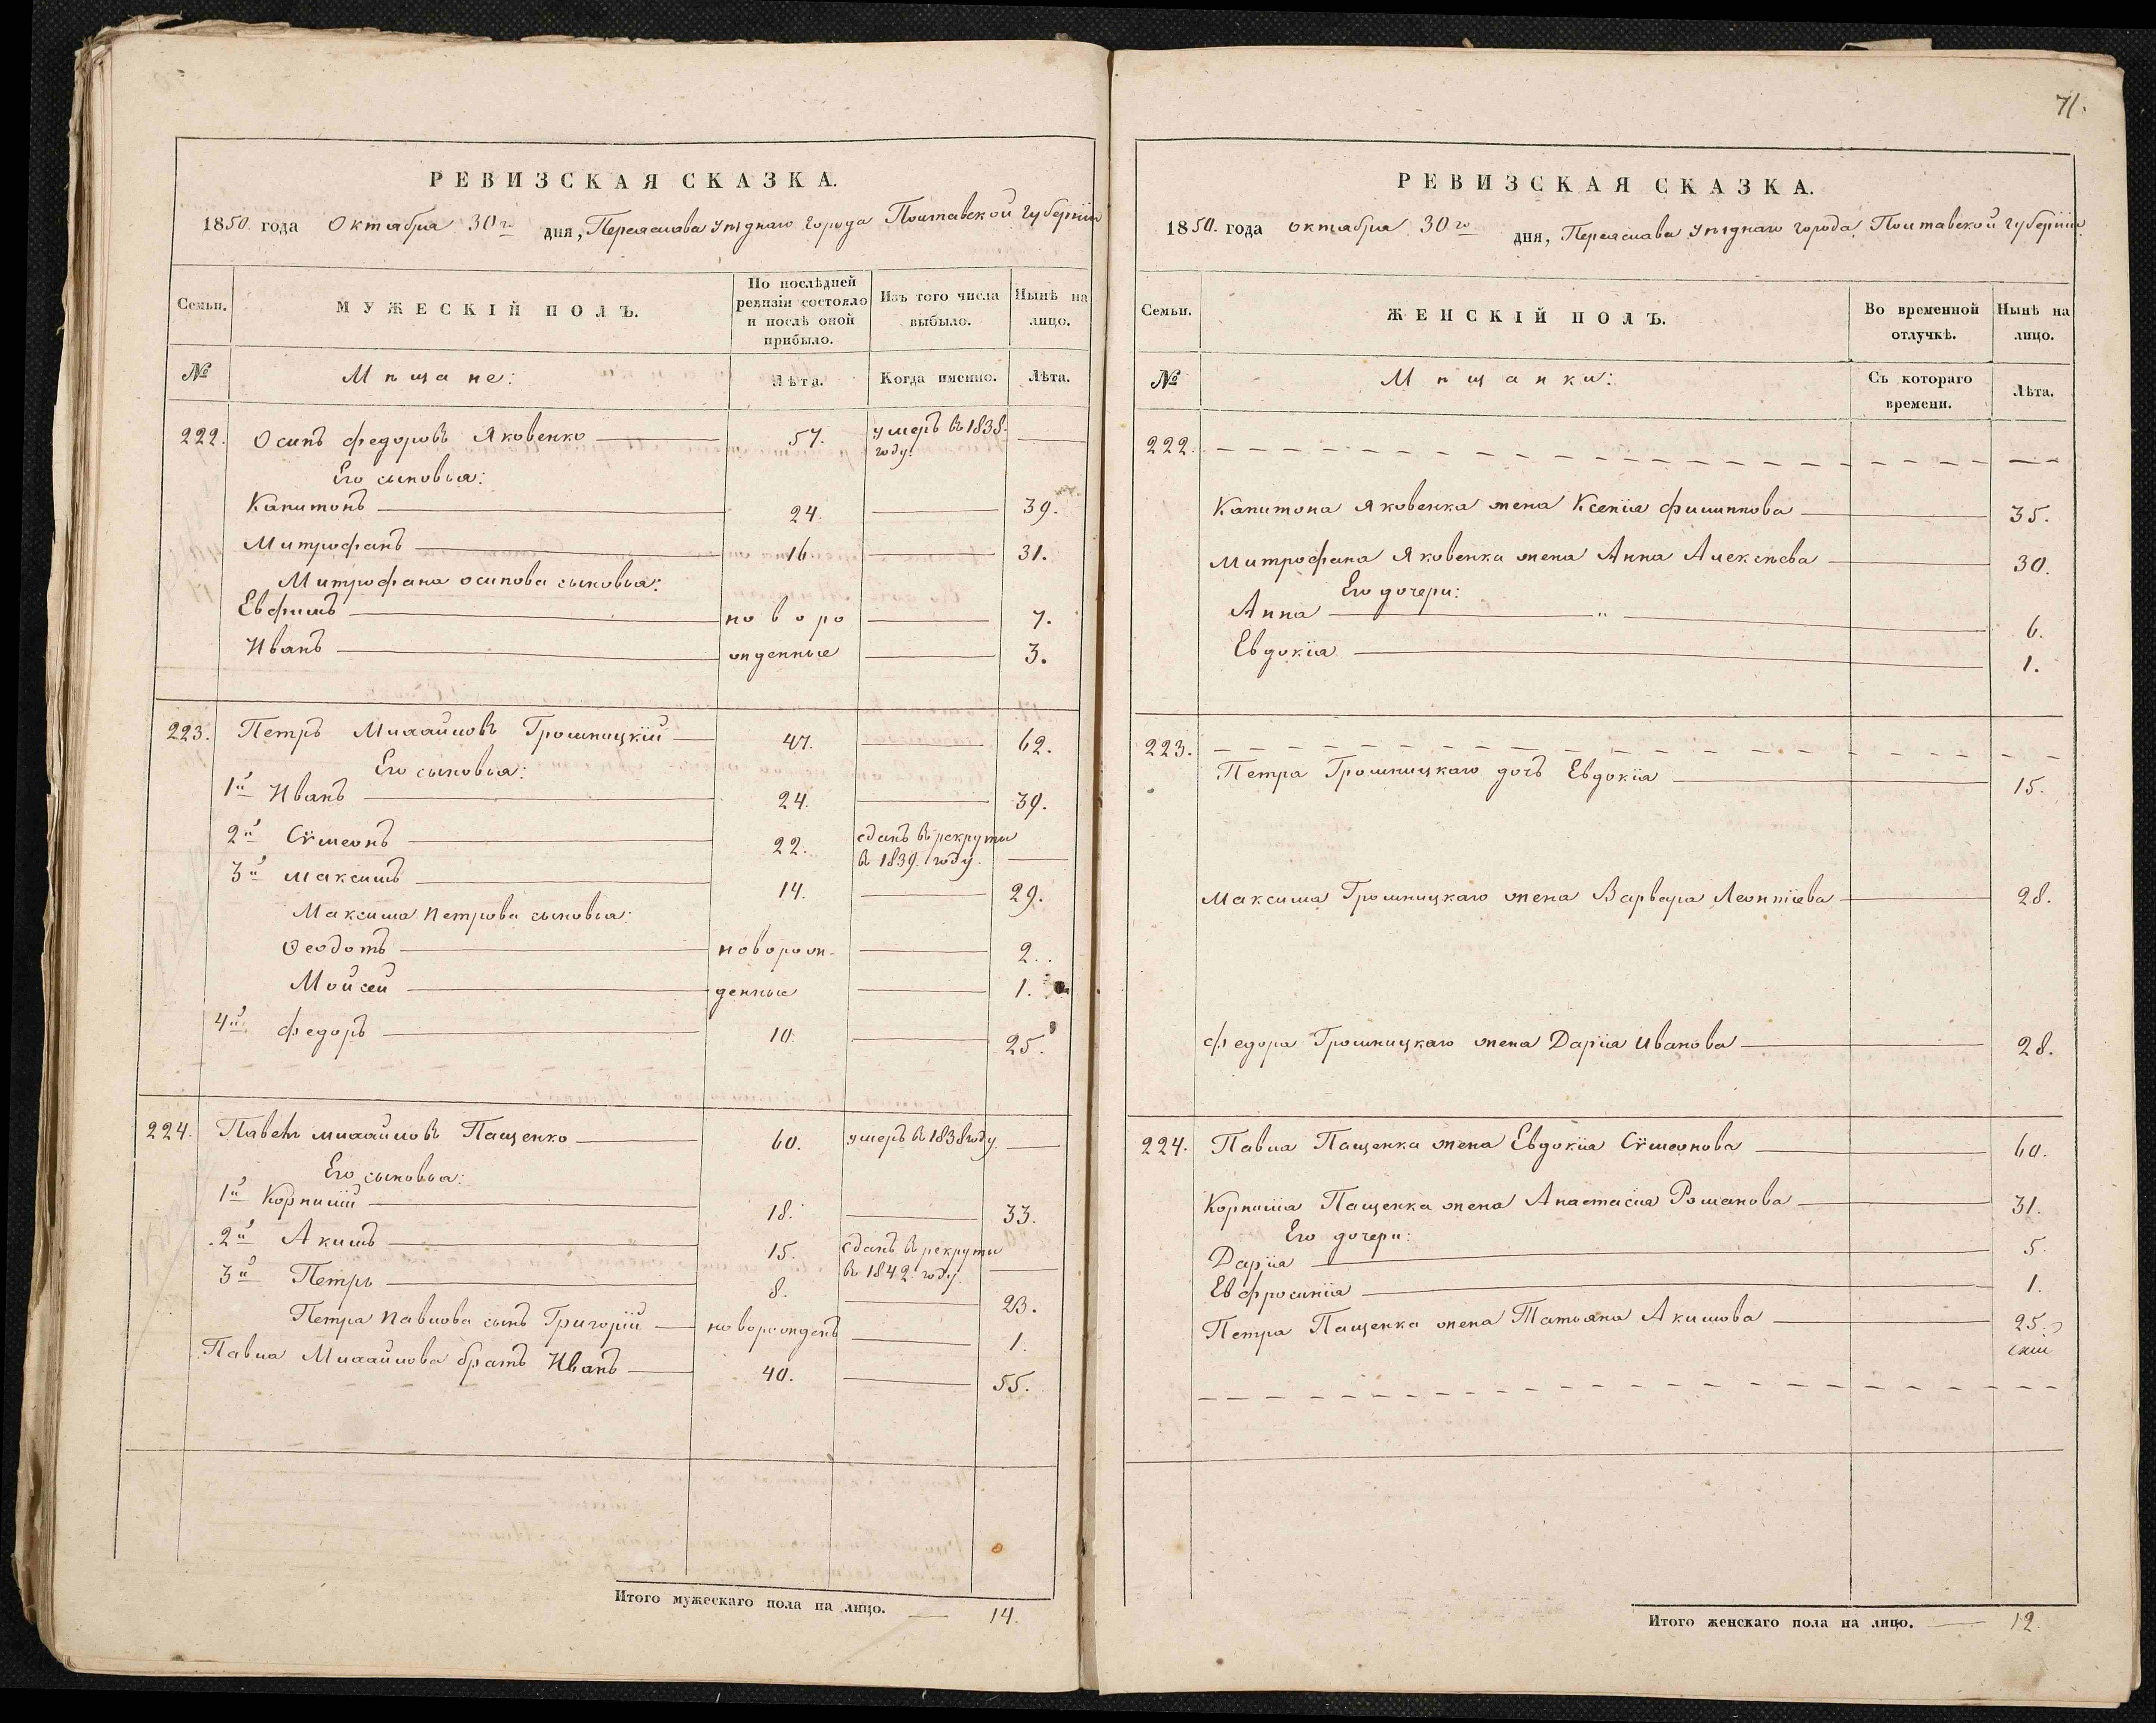 РЕВИЗСКАЯ СКАЗКА.
1850. года Октября 30го дня, Переяслава уѣзднаго города Полтавской губерніи
Семьи. МУЖЕСКІЙ ПОЛЪ. По послѣдней ревизіи состояло и послѣ оной прибыло. Изъ того числа выбыло. Нынѣ на лицо.
№ Мѣщане: Лѣта. Когда именно. Лѣта.
222. Осипъ Федоровъ Яковенко 57. умеръ въ 1838. году.
Его сыновья:
Капитонъ 24. 39.
Митрофанъ 16 31.
Митрофана Осипова сыновья:
Евфимъ новоро 7.
Иванъ жденные 3.
223. Петръ Михайловъ Грошницкій 47. 62.
Его сыновья:
1й Иванъ 24. 39.
2й Сѵмеонъ 22. сданъ въ рекруты въ 1839. году.
3й Максимъ 14. 29.
Максима Петрова сыновья:
Ѳеодотъ naворож- 2.
Мойсей денные 1.
4й Федоръ 10. 25.
224. Павелъ Михайловъ Пащенко 60. умеръ въ 1838 году.
Его сыновья:
1й Корнилій 18. 33.
2й Акимъ 15. сданъ въ рекруты въ 1842. году.
3й Петръ 8. 23.
Петра Павлова сынъ Григорій новорожденъ 1.
Павла Михайлова братъ Иванъ 40. 55.
Итого мужескаго пола на лицо. 14.
71.
РЕВИЗСКАЯ СКАЗКА.
1850. года октября 30го дня, Переяслава уѣзднаго города Полтавской губерніи
Семьи. ЖЕНСКІЙ ПОЛЪ. Во временной отлучкѣ. Нынѣ на лицо.
№ Мѣщанки: Съ котораго времени. Лѣта.
222.
Капитона Яковенка жена Ксенія Филиппова 35.
Митрофана Яковенка жена Анна Алексѣева 30.
Его дочери:
Анна " 6.
Евдокія 1.
223.
Петра Грошницкаго дочь Евдокія 15.
Максима Грошницкаго жена Варвара Леонтіева 28.
Федора Грошницкаго жена Дарія Иванова 28.
224. Павла Пащенка жена Евдокія Сѵмеонова 60.
Корнилія Пащенка жена Анастасія Романова 31.
Его дочери:
Дарія 5.
Евфросинія 1.
Петра Пащенка жена Татьяна Акимова 25.
Итого женскаго пола на лицо. 12.